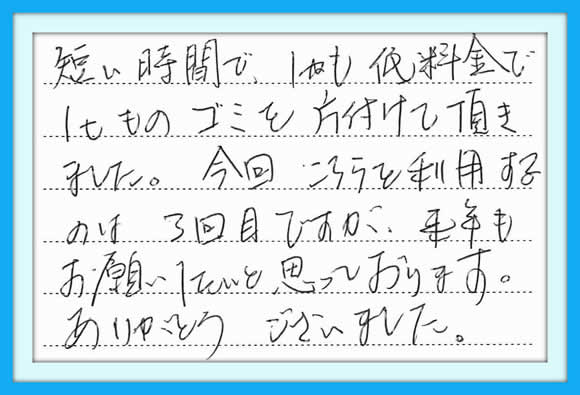 短い時間で、しかも低料金で
1tものゴミを片付けて頂き
ました。今回こちらを利用する
のは3回目ですが、来年も
お願いしたいと思っております。
ありがとうございました。